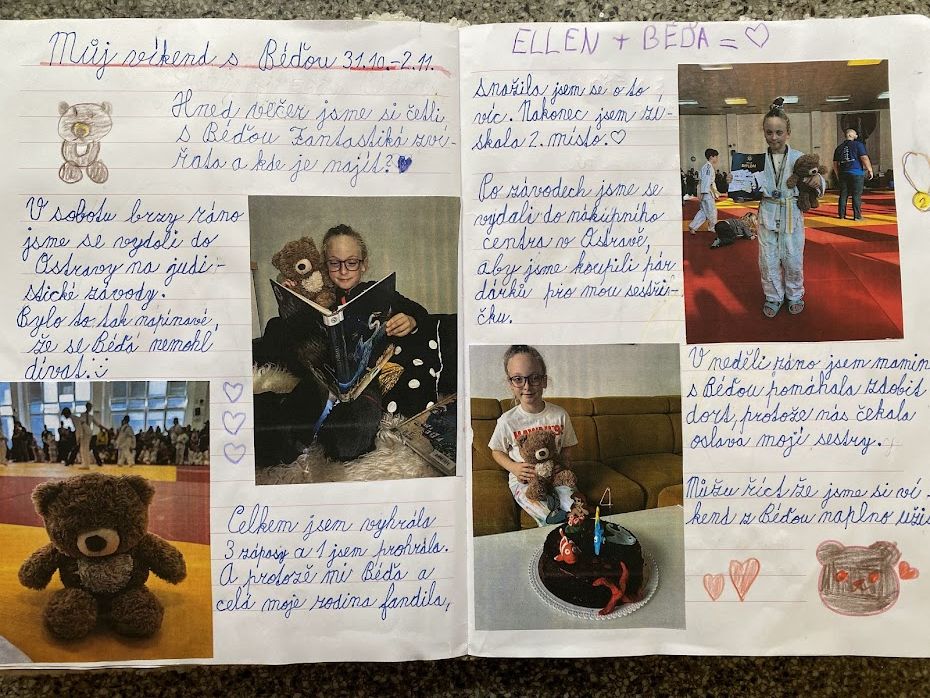 Můj víkend s Béďou 31.10.-2.11.
Hned večer jsme si četli
s Béďou Fantastiká zví-
řata a kde je najít?
V sobotu brzy ráno
jsme se vydali do
Ostravy na judi-
stické závody.
Bylo to tak nápínavé,
že se Béďa nemohl
dívat.
Celkem jsem vyhrála
3 zápasy a 1 jsem prohrála.
A protože mi Béďa a
celá moje rodina fandila,
ELLEN + BÉĎA =
snažila jsem se o to
víc. Nakonec jsem zí-
skala 2. místo.
Po závodech jsme se
vydali do nákupního
centra v Ostravě,
aby jsme koupili pár
dárků pro mou sestřič-
ku.
2
V neděli ráno jsem mamin
s Béďou pomáhala zdobit
dort, protože nás čekala
oslava mojí sestry.
Můžu říct že jsme si ví-
kend z Béďou naplno užis
DIPLOM
4